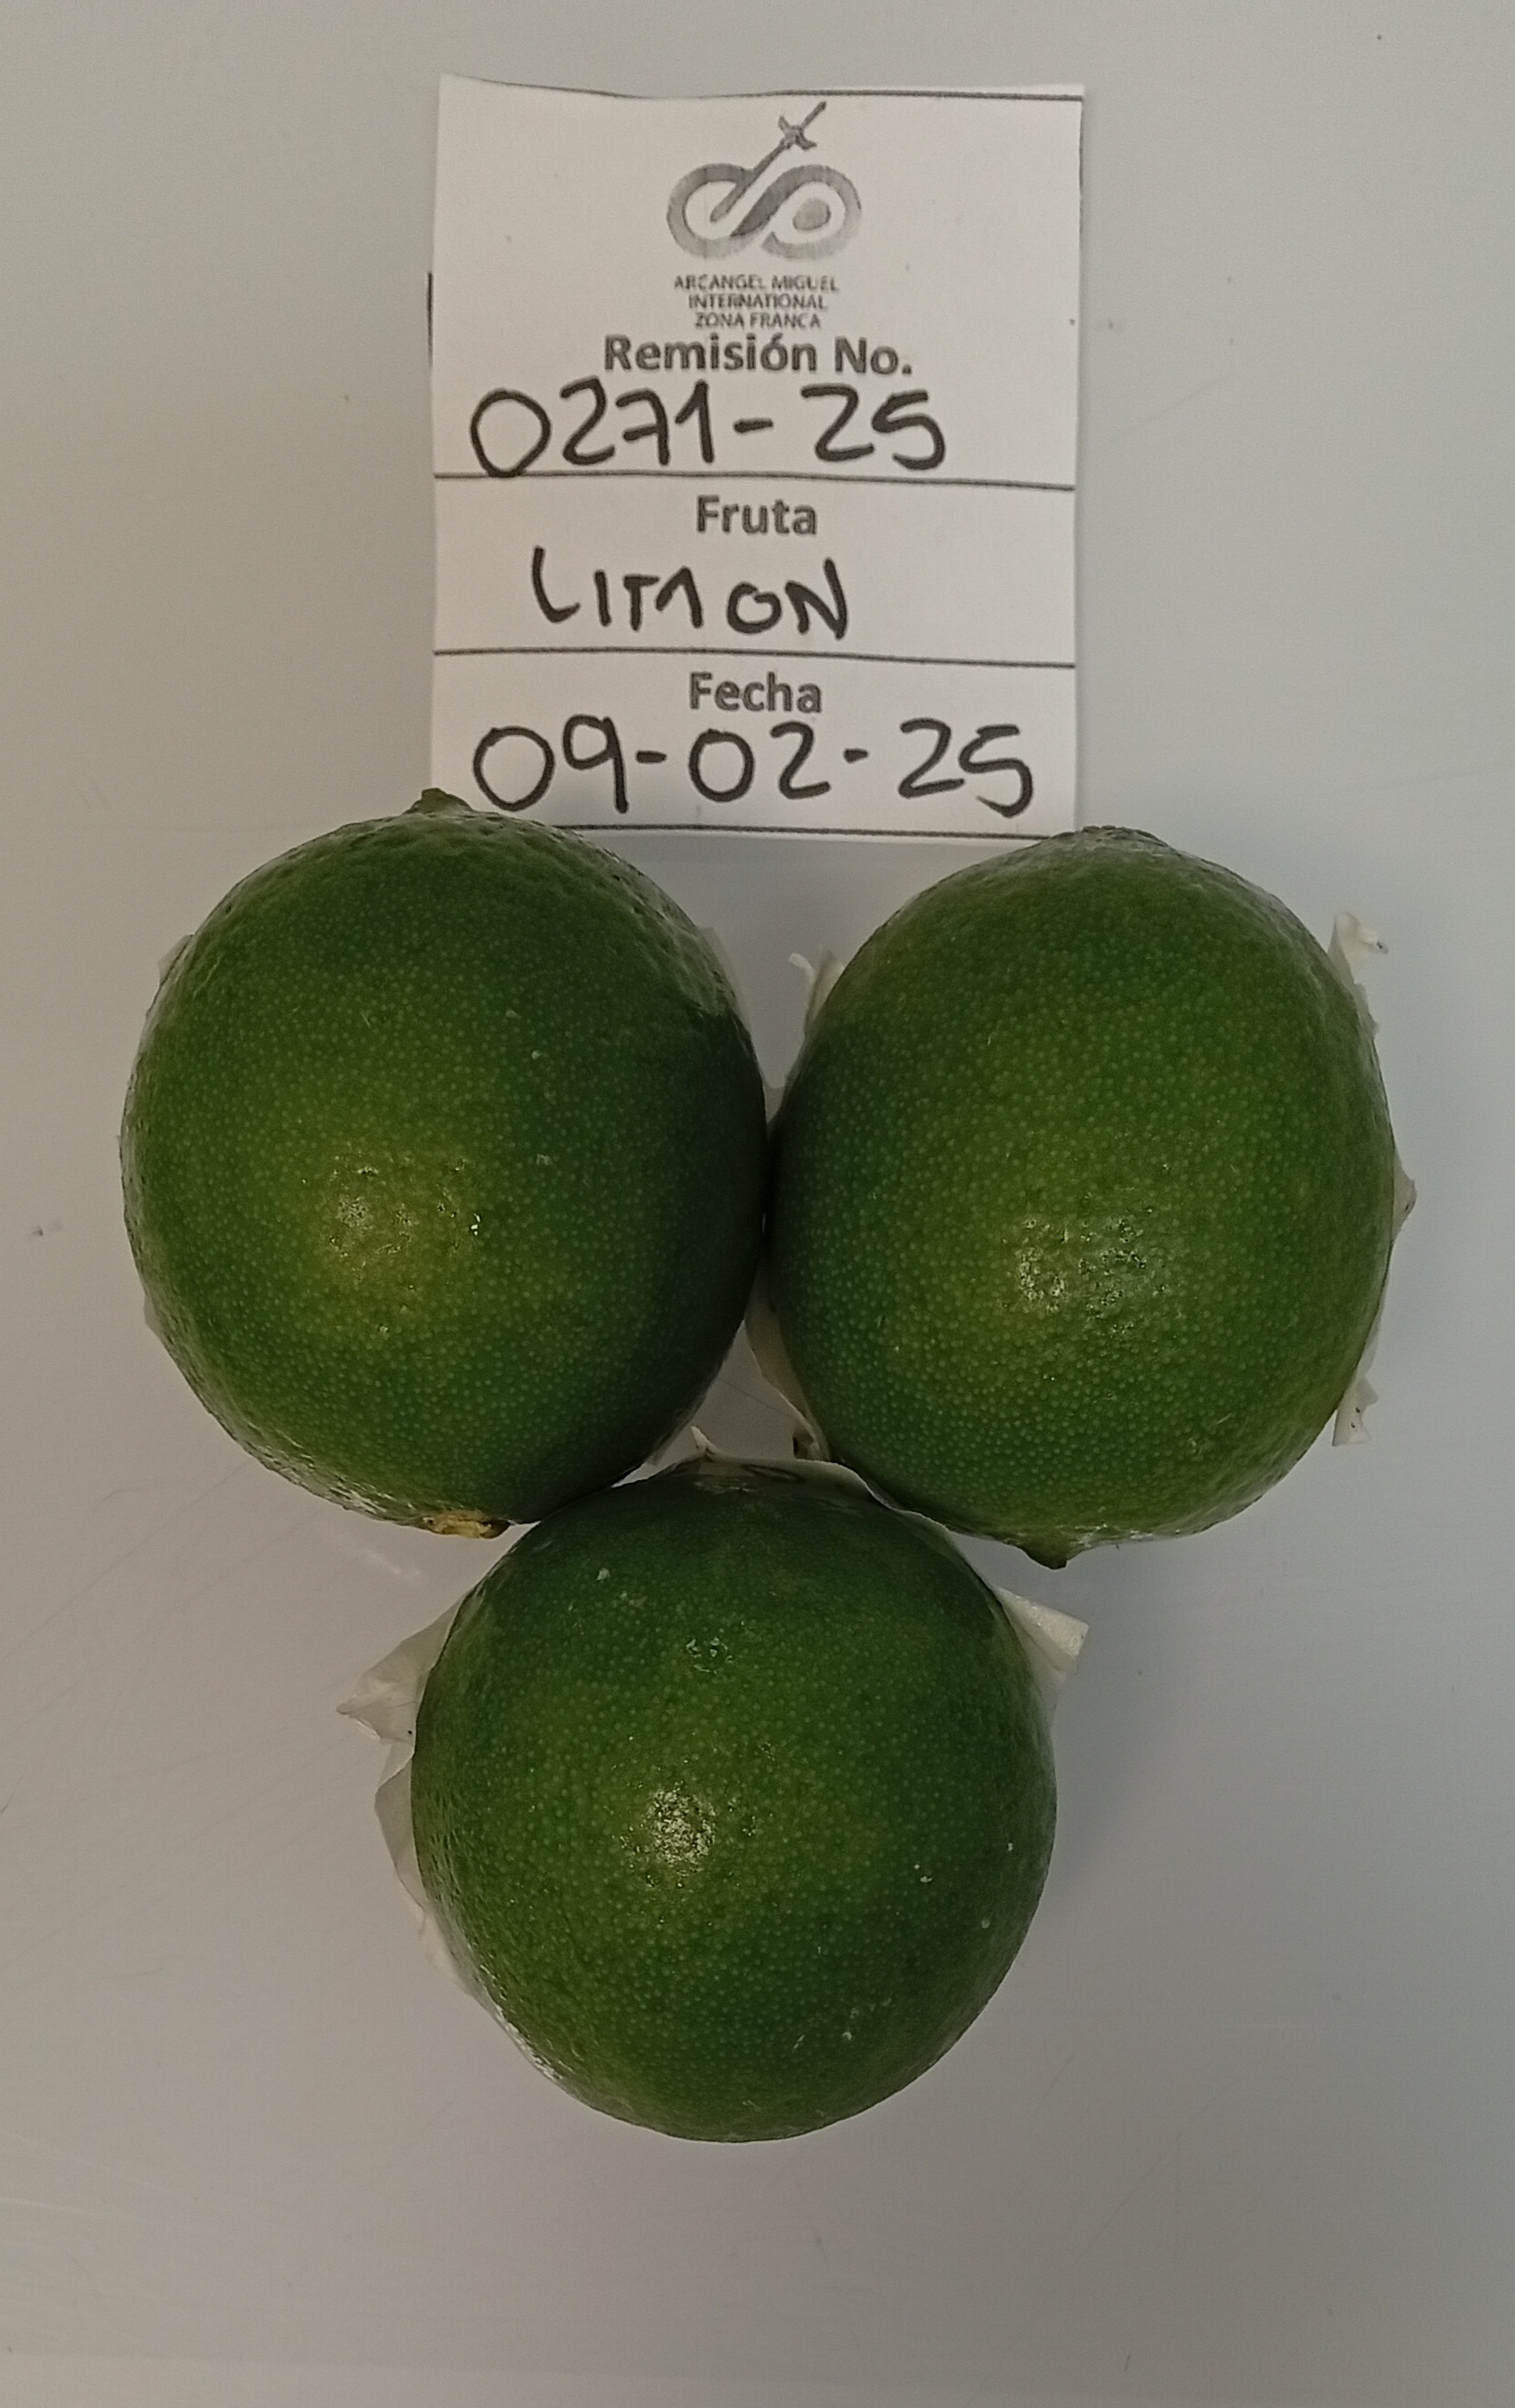 ARCANGEL MIGUEL
INTERNATIONAL
ZONA FRANCA
Remisión No.
0271-25
Fruta
LIMON
Fecha
09-02-25